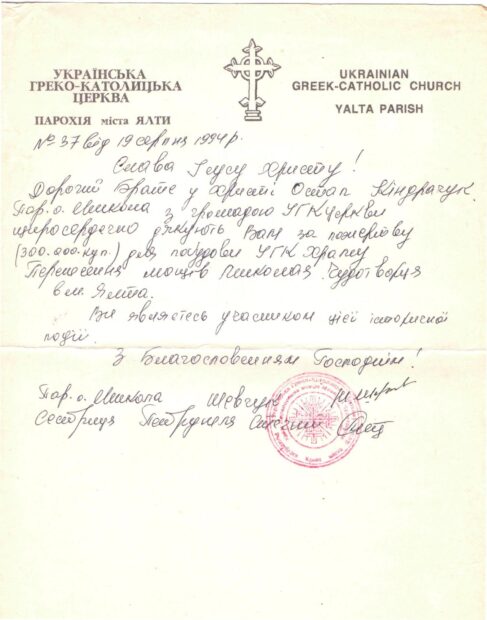 УКРАЇНСЬКА
ГРЕКО-КАТОЛИЦЬКА
ЦЕРКВА
ПАРОХІЯ міста ЯЛТИ
UKRAINIAN
GREEK-CATHOLIC CHURCH
YALTA PARISH
№ 37 від 19 серпня 1994 р.
Слава Ісусу Христу!
Дорогий Брате у Христі Остап Кіндрачук.
Пар. о. Микола з громадою УГК Церкви
щиросердечно дякують Вам за пожертву
(300.000. куп.) для побудови УГК Храму
Перенесення мощів Миколая Чудотворця
в м. Ялта.
Ви являєтесь учасником цієї історичної
події.
З Благословенням Господнім!
Пар. о. Микола Шевчук
Сестриця